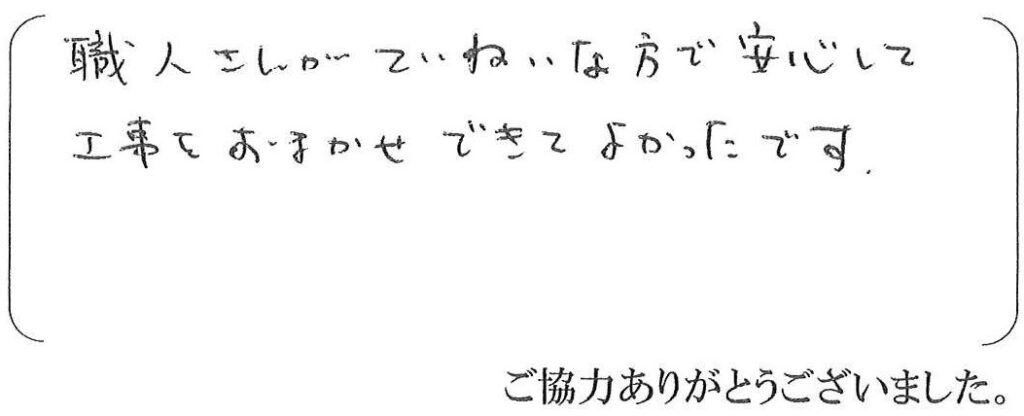 職人さんがていねいな方で安心して
工事をおまかせできてよかったです.
ご協力ありがとうございました。